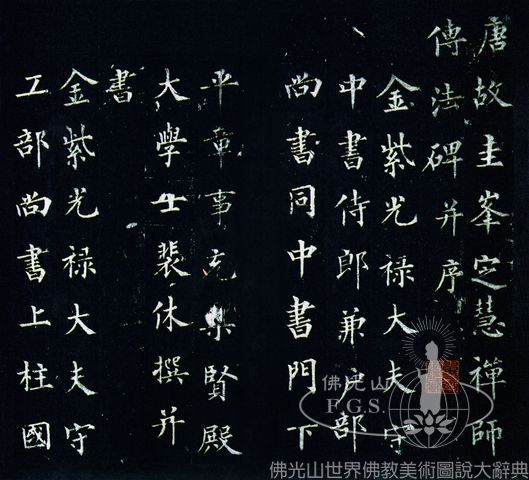 唐故圭峯定慧禪師
傳法碑并序
金紫光禄大夫守
中書侍郎兼户部
尚書同中書門下
平章事充集賢殿
大學士裴休撰并
書
金紫光禄大夫守
工部尚書上柱國
佛光山
F.G.S.
佛光山世界佛教美術圖說大辭典